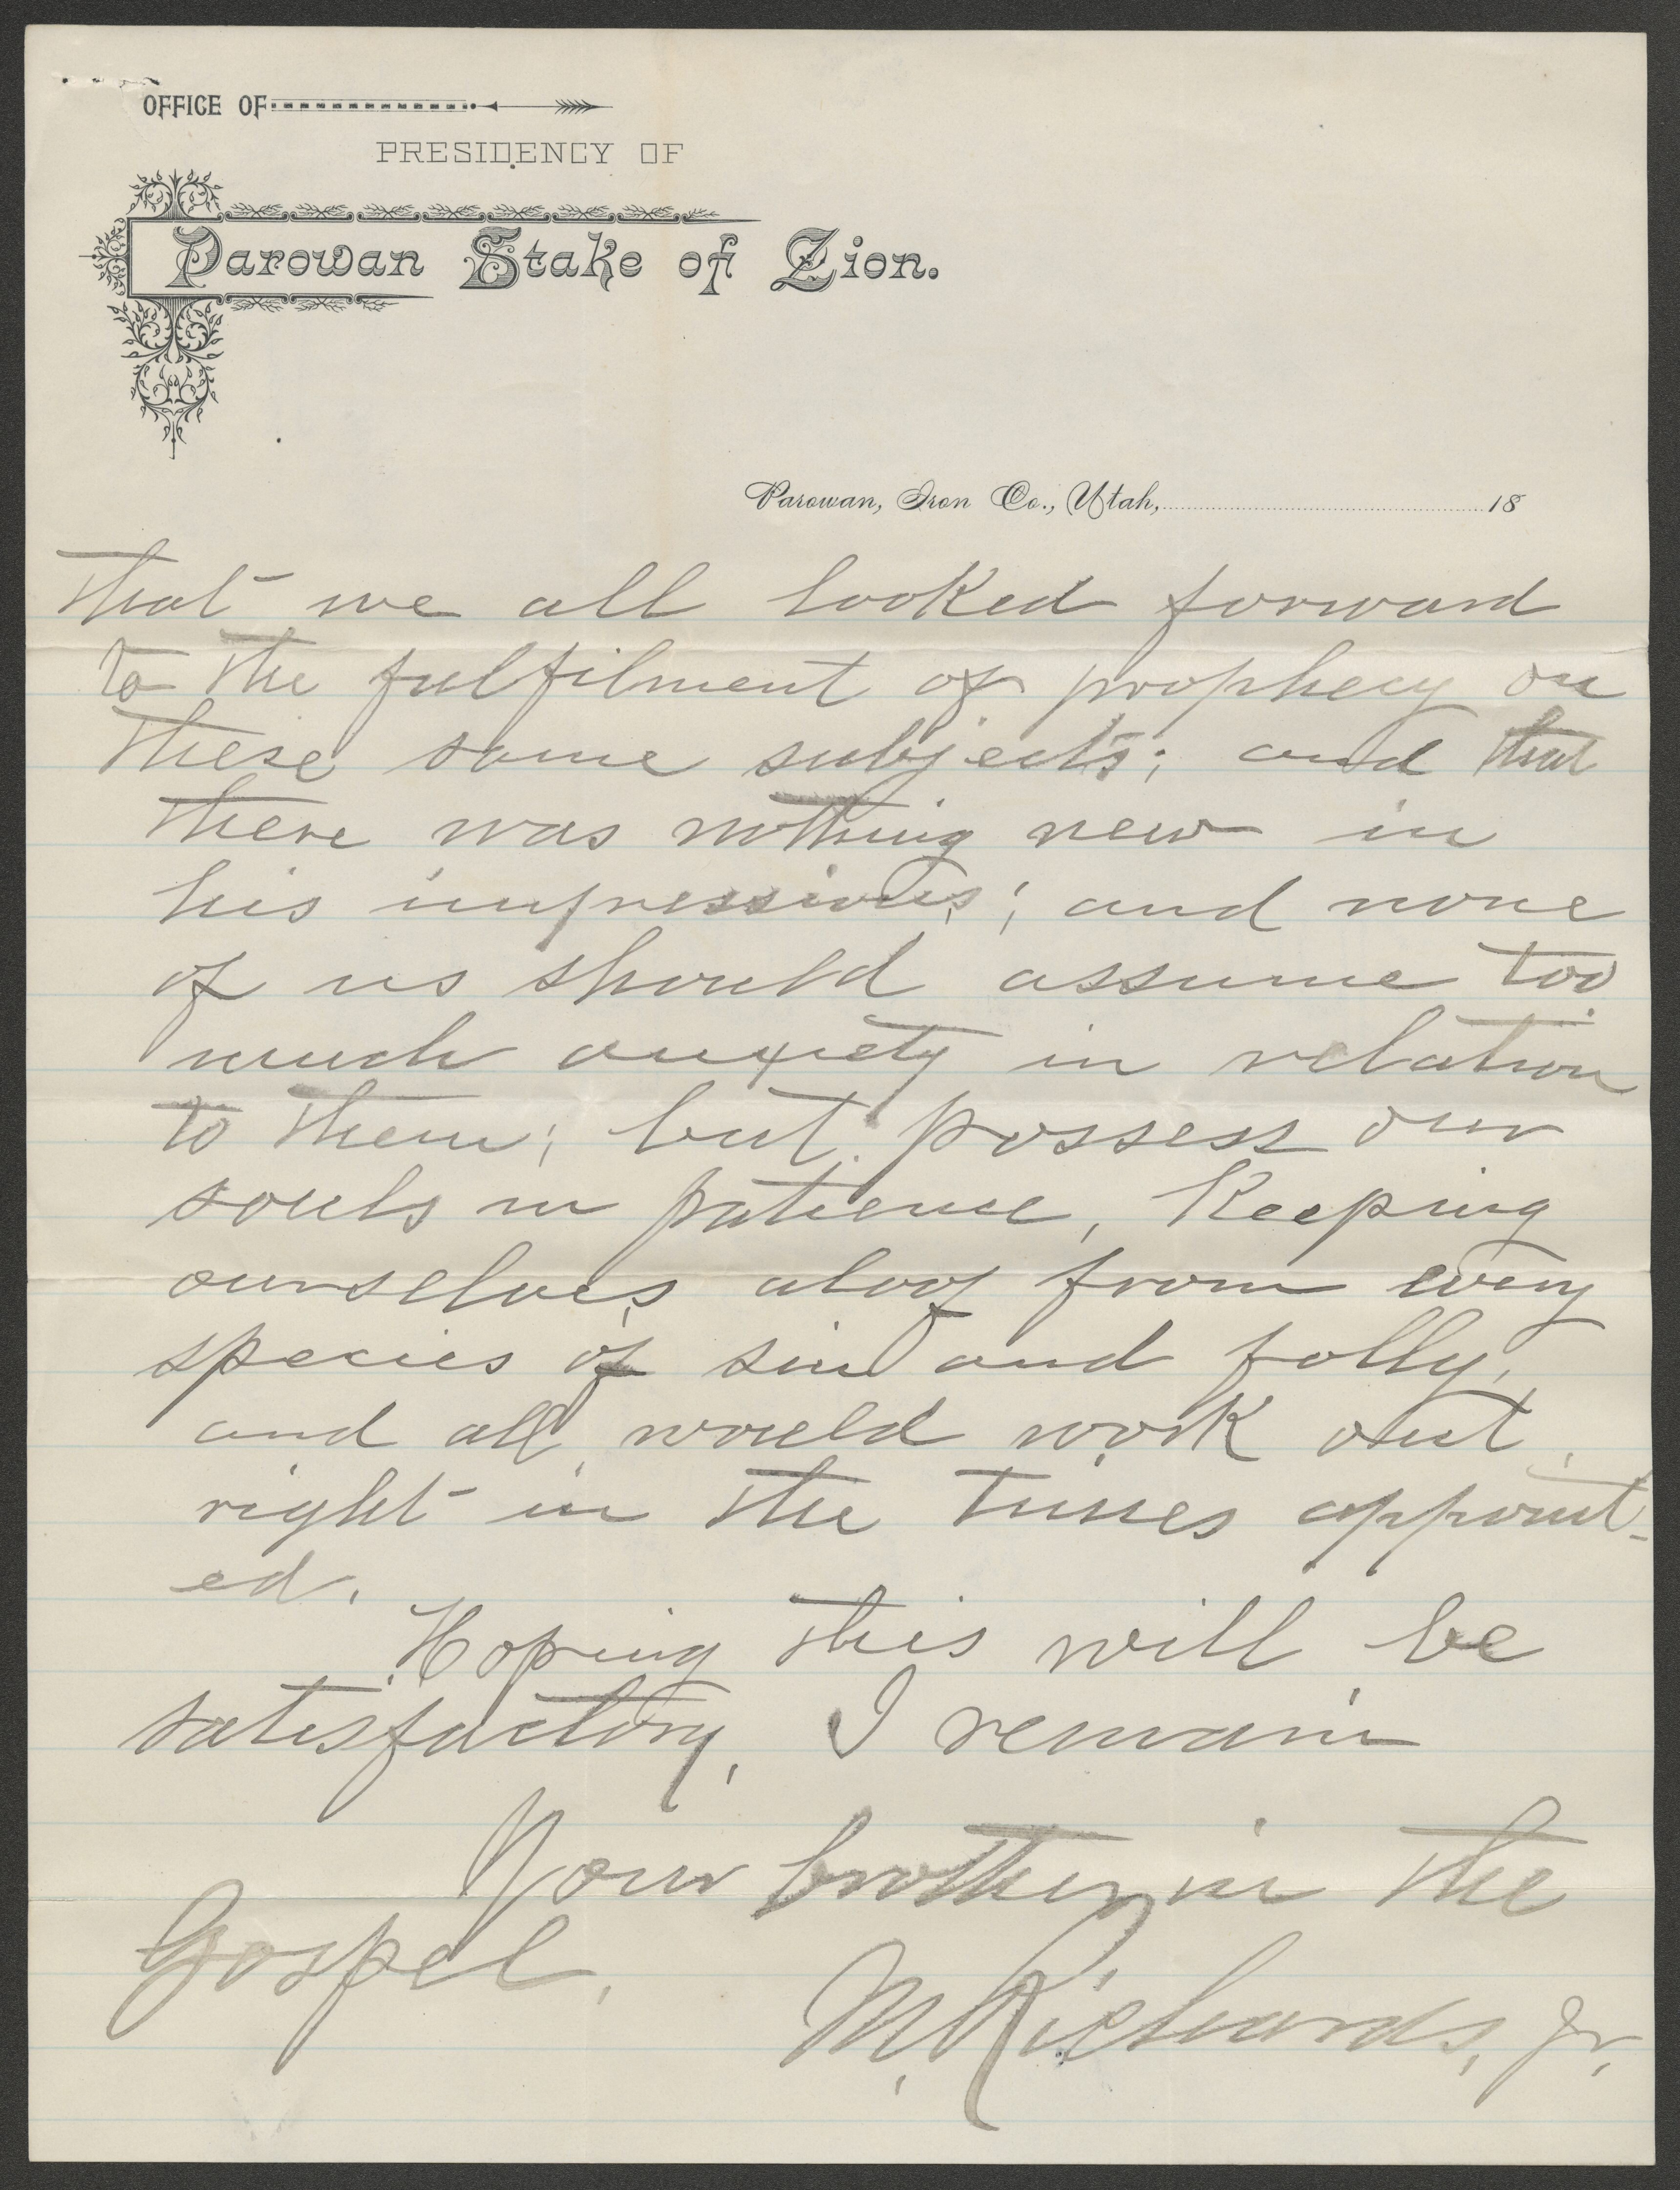 OFFICE OF
PRESIDENCY OF
Parowan Stake of Zion.
Parowan, Iron Co., Utah, 18
that we all looked forward
to the fulfilment of prophecy on
these same subjects; and that
there was nothing new in
his impressions; and none
of us should assume too
much anxiety in relation
to them; but possess our
souls in patience, Keeping
ourselves aloof from every
species of sin and folly,
and all would work out
right in the times appoint-
ed.
Hoping this will be
satisfactory, I remain
Your brother in the
Gospel,
M. Richards, Jr.